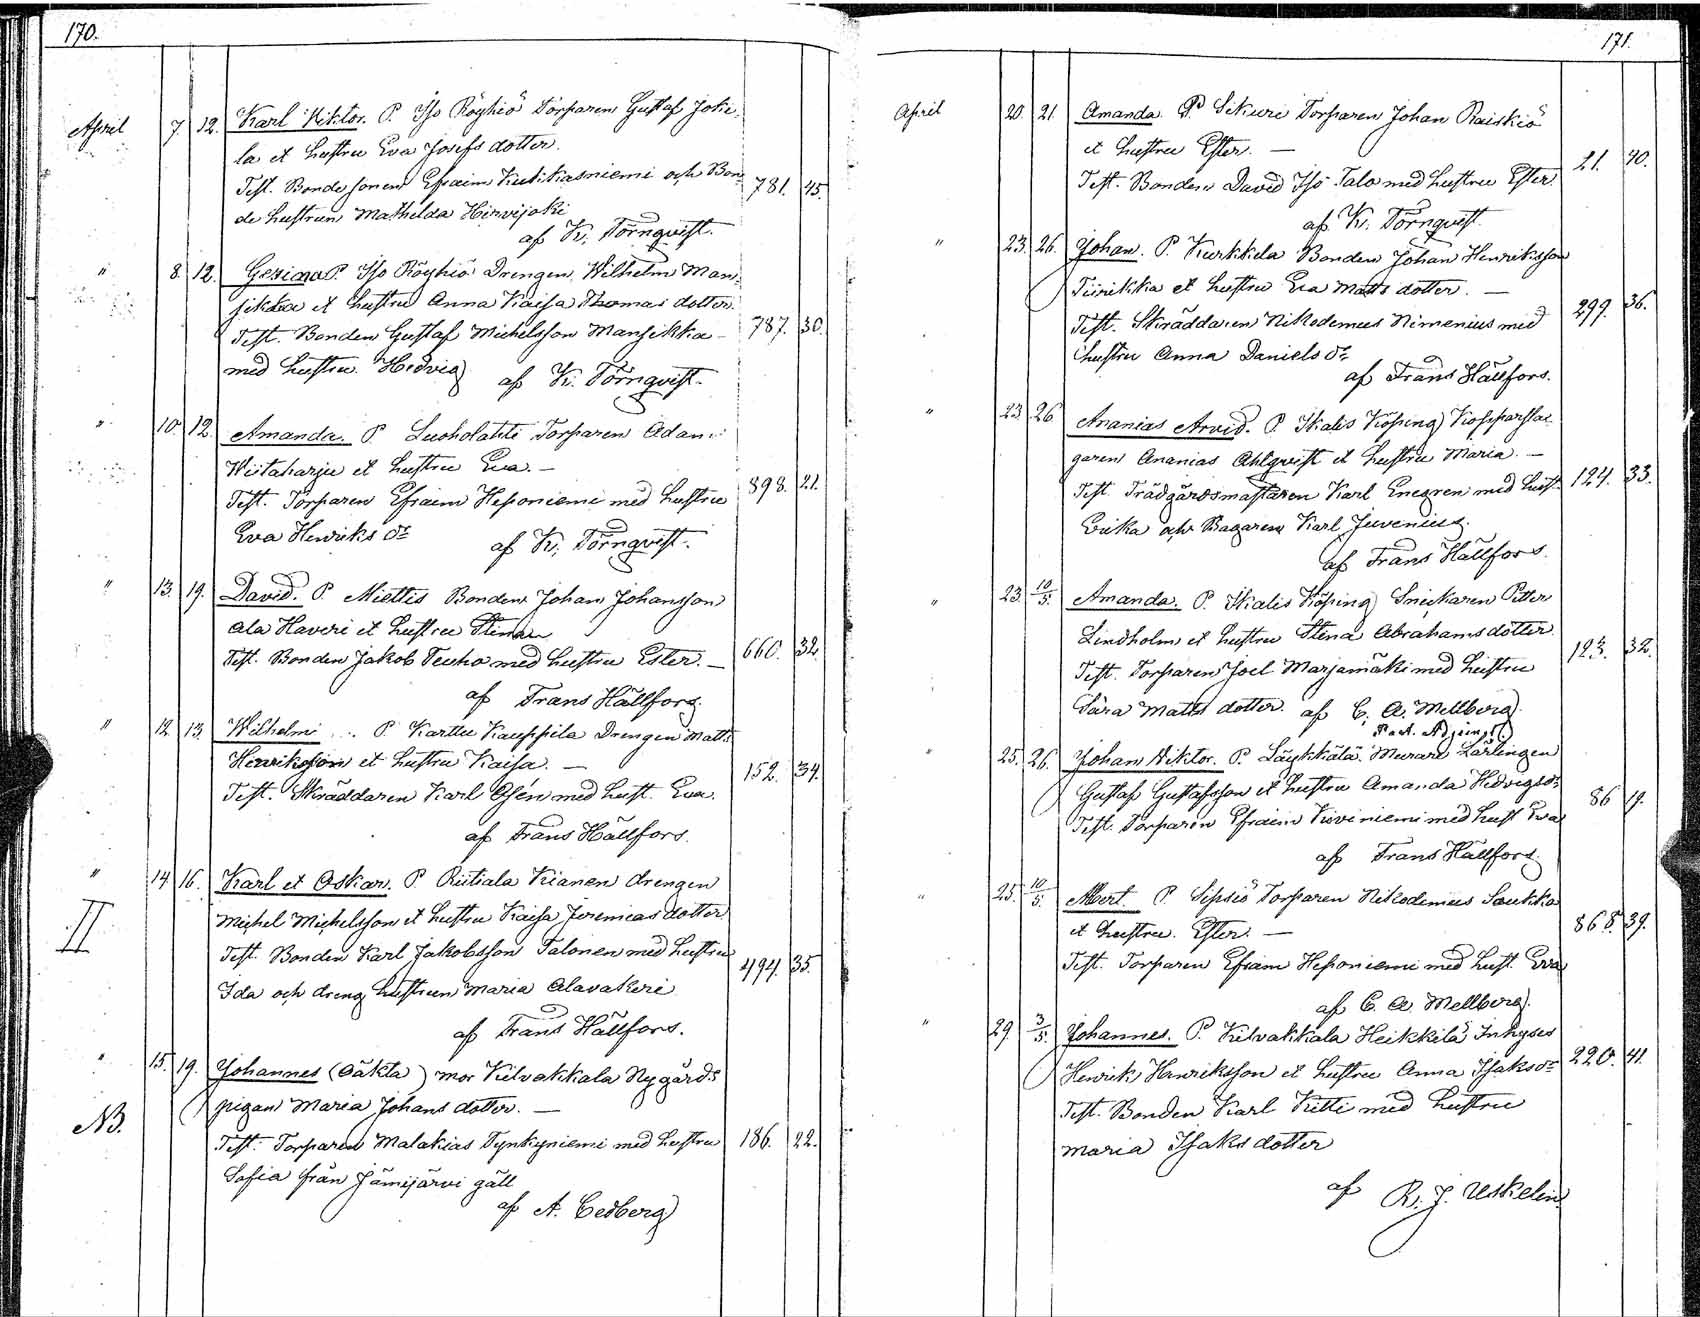 170.
April 7. 12. Karl Viktor. P. Iso Röyhiö Torparen Gustaf Joki-
la et hustru Eva Josefs dotter.
Test. Bonde sonen Efraim Kutikasniemi och Bon- 781. 45.
de hustrun Mathilda Hirvijoki
af K. Törnqvist.
" 8. 12. Gerina P. Iso Röyhiö Drengen Wilhelm Man-
sikka et hustru Anna Kaisa Thomas dotter.
Test. Bonden Gustaf Michelsson Mansikka 787. 30.
med hustru Hedvig af K. Törnqvist.
" 10. 12. Amanda. P. Luoholahti Torparen Adam
Wiitaharju et hustru Eva. —
Test. Torparen Efraim Heponiemi med hustru 898. 21.
Eva Henriks dr af K. Törnqvist.
" 13. 19. David. P. Miettis Bonden Johan Johansson
Ala Haveri et hustru Stina
Test. Bonden Jakob Teuho med hustru Ester. — 660. 32.
af Frans Hällfors.
" 12. 13. Wilhelm P. Karttu Kauppila Drengen Matts
Henriksson et hustru Kaisa. —
Test. Skräddaren Karl Osén med hust. Eva. 152. 34.
af Frans Hällfors.
" 14. 16. Karl et Oskar. P. Riitiala Kianen drengen
II Michel Michelsson et hustru Kaisa Jeremias dotter
Test. Bonden Karl Jakobsson Talonen med hustru 494. 35.
Ida och dreng hustrun Maria Alavakeri
af Frans Hällfors.
" 15. 19. Johannes (Oäkta) mor Kilvakkala Nygårds
NB. pigan Maria Johans dotter. —
Test. Torparen Malakias Tynkyniemi med hustru 186. 22.
Sofia från Jämijärvi gäll
af A. Cedberg
171.
April 20. 21. Amanda. P. Sikuri Torparen Johan Raiskiö
et hustru Ester. —
Test. Bonden David Iso Talo med hustru Ester. 21. 40.
af K. Törnqvist.
" 23. 26. Johan. P. Kurkkela Bonden Johan Henriksson
Tiirikka et hustru Eva Matts dotter. —
Test. Skräddaren Nikodemus Nimenius med 299. 36.
hustru Anna Daniels dr
af Frans Hällfors.
" 23 26 Ananias Arvid. P. Ikalis Köping Kopparsla-
garen Ananias Ahlqvist et hustru Maria. —
Test. Trädgårdsmästaren Karl Enegren med hust. 124. 33.
Erika och Bagaren Karl Juvenius.
af Frans Hällfors.
" 23. 10/5. Amanda. P. Ikalis Köping Snickaren Petter
Lindholm et hustru Stina Abrahams dotter
Test. Torparen Joel Marjamäki med hustru 123. 32.
Sara Matts dotter. af C. A. Mellberg
Past. Adjunct.
" 25. 26. Johan Viktor. P. Läykkälä Murare Lärlingen
Gustaf Gustafsson et hustru Amanda Hedvigsdr
Test. Torparen Efraim Viiviniemi med hust Eva 86 19.
af Frans Hällfors.
" 25. 10/5. Albert. P. Sipsiö Torparen Nikodemus Saukko
et hustru. Ester. — 868. 39.
Test. Torparen Efraim Heponiemi med hust. Eva
af C. A. Mellberg.
" 29. 3/5. Johannes. P. Kilvakkala Heikkilä Inhyses
Henrik Henriksson et hustru Anna Isaks dr 220. 41.
Test. Bonden Karl Kitti med hustru
Maria Isaks dotter
af R. J. Uskelin